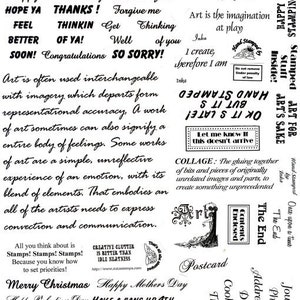 HOPE YA THANKS! Forgive me
FEEL THINKIN Get Thinking
BETTER OF YA! Well of you
SOON! Congratulations SO SORRY!
Art is often used interchangeable
with imagery which departs form
representational accuracy. A work
of art sometimes can also signify a
entire body of feelings. Some works
of art are a simple, unreflective
experience of an emotion, with its
blend of elements. That embodies an
all of the artists needs to express
convection and communication.
All you think about is
Stamps! Stamps! Stamps!
Because you know how
to set priorities!
CREATIVE CLUTTER
IS BETTER THAN
IDLE NEATNESS
Merry Christmas Happy Mothers Day
Art is the imagination
at play!
I create,
therefore I am
OK IT'S LATE!
BUT IT'S
HAND STAMPED
Let me know if
this doesn't arrive
COLLAGE : The gluing together
of bits and pieces of originally
unrelated images and parts, to
create something unprecedented
Art
Contents
Enclosed
The End
Postcard
HAPPY
Stamped
Stuff
Inside!
ART FOR
ART'S SAKE
hand stamped by
Once upon a time
The End